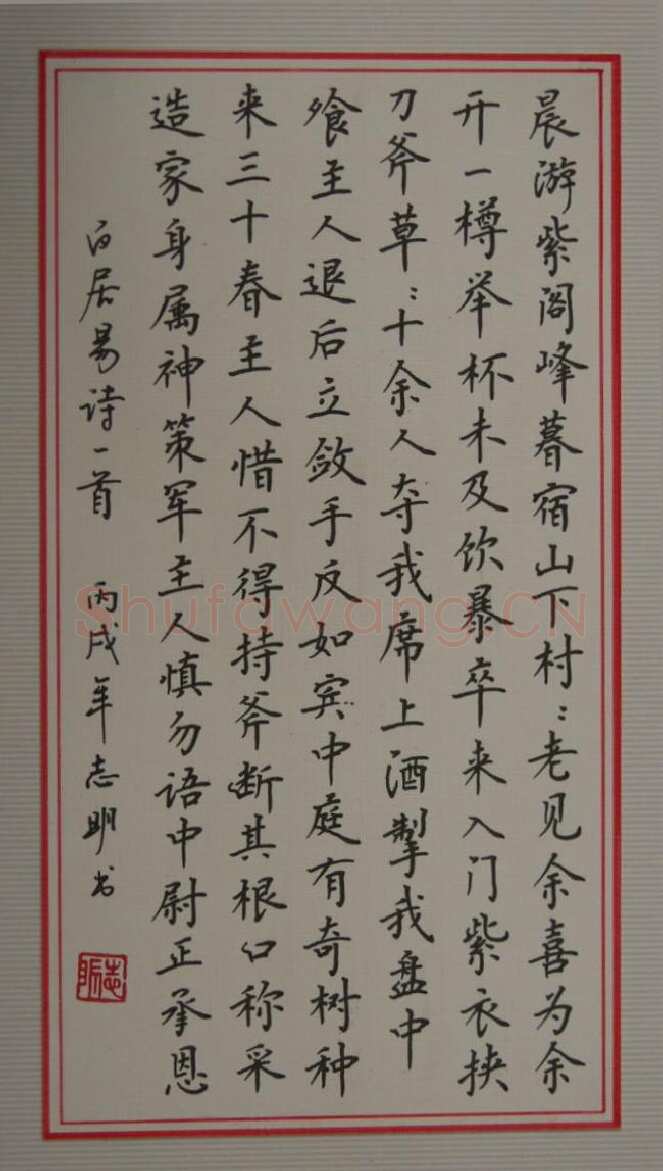 晨游紫阁峰暮宿山下村〻老见余喜为余
开一樽举杯未及饮暴卒来入门紫衣挟
刀斧草〻十余人夺我席上酒掣我盘中
飧主人退后立敛手反如宾中庭有奇树种
来三十春主人惜不得持斧断其根口称采
造家身属神策军主人慎勿语中尉正承恩
白居易诗一首 丙戌年志明书
志明
Shufawang.CN